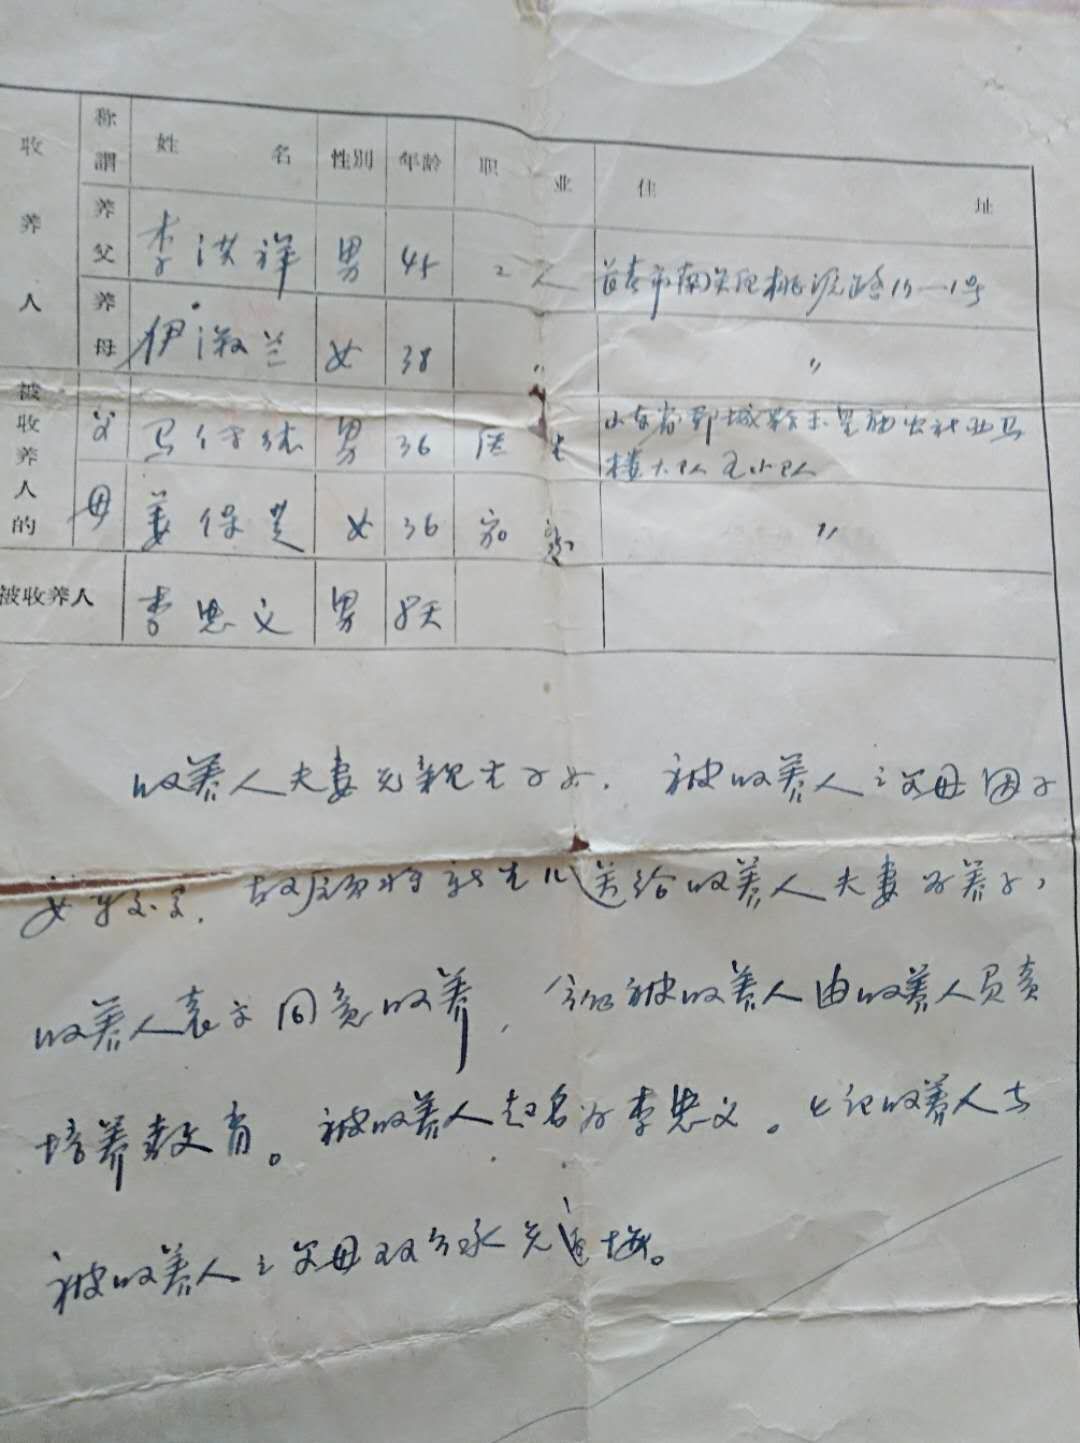 收养人 称謂 姓名 性別 年龄 职业 住址
养父 李洪祥 男 45 工人 长春市南关区桃源路
养母 伊淑兰 女 38 〃 〃
被收养人的 父 马付 男 36 医生 山东省郓城县
楼大队 小队
母 姜保芝 女 36 〃
被收养人 李忠义 男 8天
收养人夫妻无亲生子女. 被收养人之父母因子
女 故愿将新生儿送给收养人夫妻为养子,
收养人表示同意收养, 今后被收养人由收养人负责
培养教育。被收养人起名为李忠义。 收养人与
被收养人之父母双方永无追悔。